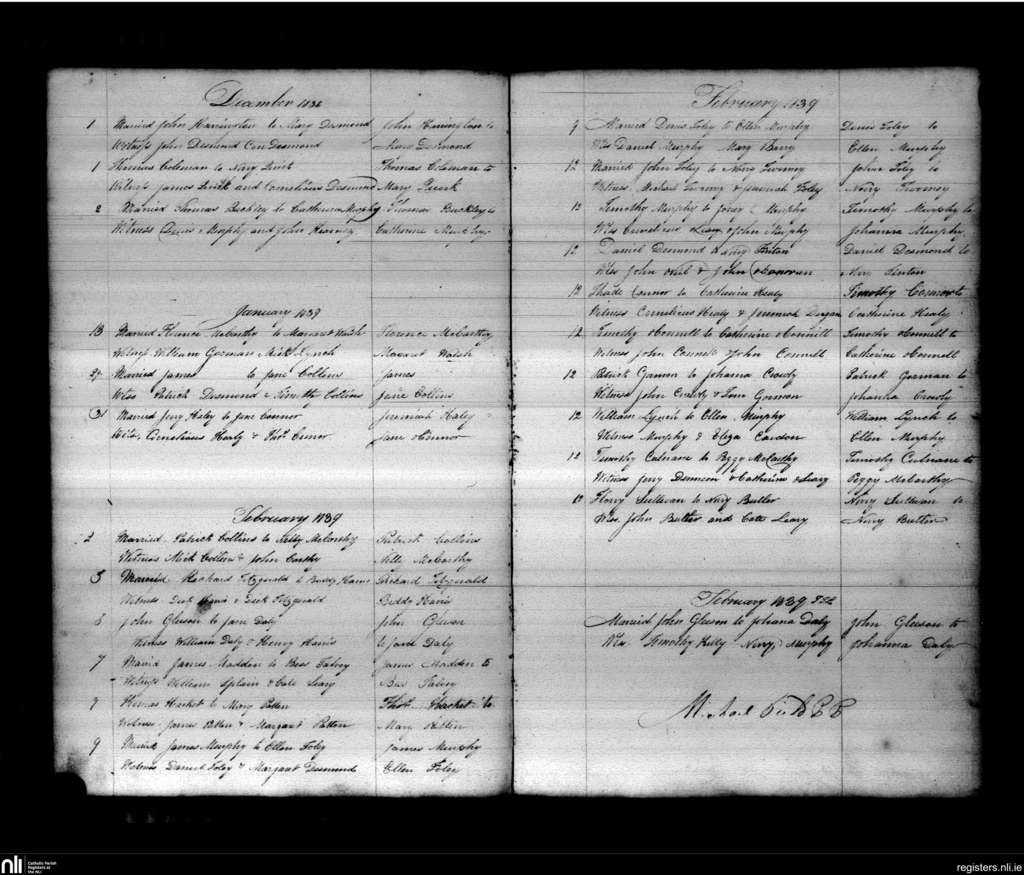 December 1838
1 Married John Harrington to Mary Desmond John Harrington to
Witness John Desmond Con Desmond Mary Desmond
1 Thomas Coleman to Mary Quirk Thomas Coleman to
Witness James Quirk and Cornelius Desmond Mary Quirk
2 Married Thomas Buckley to Catherine Murphy Thomas Buckley to
Witness Denis Murphy and John Kearney Catherine Murphy
January 1839
13 Married Florence McCarthy to Margaret Walsh Florence McCarthy
Witness William Gorman Mick Lynch Margaret Walsh
Married James to Jane Collins James
Wtss Patrick Desmond & Collins Jane Collins
31 Married Jerry Haley to Jane Connor Jeremiah Haley
Cornelius Healy & Thos. Connor Jane OConnor
February 1839
2 Married Patrick Collins to Nelly McCarthy Patrick Collins
Witness Mick Collins & John Carthy Nelly McCarthy
5 Married Richard Fitzgerald to Biddy Richard Fitzgerald
Witness Dick & Dick Fitzgerald
John Gleeson to Jane Daly John Gleeson
Witness William Daly & Henry to Jane Daly
7 Married James Madden to Bess James Madden to
Witness William Splain & Cate Leary Bess
9 Thomas Hacket to Mary Patten Thos. Hacket to
Witness James Patten & Margaret Patten Mary Patten
9 Married James Murphy to Ellen Foley James Murphy
Witness Daniel Foley & Margaret Desmond Ellen Foley
February 1839
9 Married Denis Foley to Ellen Murphy Denis Foley to
Wtss Daniel Murphy Mary Barry Ellen Murphy
12 Married John Foley to Nory Twomey John Foley to
Witness Michael Twomey & Jeremiah Foley Nory Twomey
12 Timothy Murphy to Murphy Timothy Murphy to
Wtss Cornelius Leary & John Murphy Johanna Murphy
12 Daniel Desmond to Daniel Desmond to
Wtss John & John ODonovan
Thade Connor to Catherine Healy Timothy Connor to
Witness Cornelius Healy & Jeremiah Catherine Healy
12 Timothy OConnell to Catherine OConnell Timothy OConnell to
Witness John Connell & John Connell Catherine OConnell
12 Patrick Gorman to Johanna Crowly Patrick Gorman to
Witness John Crowly & Gorman Johanna Crowly
12 William Lynch to Ellen Murphy William Lynch to
Witness Murphy & Eliza Ellen Murphy
12 Timothy Culnane to Peggy McCarthy Timothy Culnane to
Witness Jerry & Catherine OLeary Peggy McCarthy
Flory Sullivan to Nory Butler Sullivan to
Wtss. John Butler and Cate Leary Nory Butler
February 1839
Married John Gleeson to Johana Daly John Gleeson to
Wtss. Timothy Kelly Nory Murphy Johanna Daly
Michael P P
nli
Catholic Parish
Registers at
the NLI
registers.nli.ie